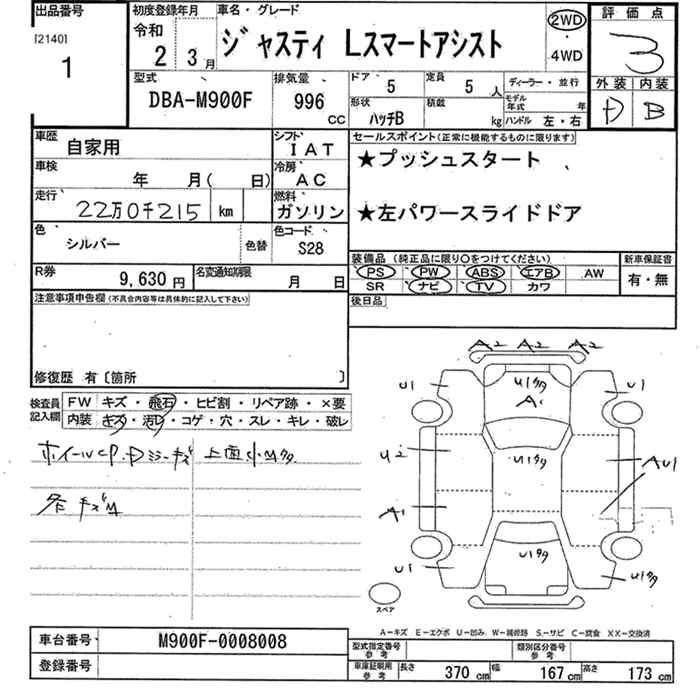 出品番号
[2140]
1
初度登録年月
令和
2 3月
車名・グレード
ジャスティ Lスマートアシスト
2WD
・
4WD
評価点
3
外装 内装
D B
型式
DBA-M900F
排気量
996
CC
ドア 5
定員 5 人
ディーラー・並行
形状
ハッチB
積載 kg
モデル年式 年
ハンドル 左・右
車歴
自家用
シフト
IAT
車検
年 月( 日)
冷房
AC
走行
22万0千215 km
燃料
ガソリン
色
シルバー
色替
色コード
S28
R券
9,630 円
名変通知期限
月 日
セールスポイント(正常に機能するものに限ります)
★プッシュスタート
★左パワースライドドア
装備品(純正品に限り○をつけてください)
PS PW ABS エアB AW
SR ナビ TV カワ
新車保証書
有・無
後日品
注意事項申告欄(不具合内容等は具体的に記入して下さい)
修復歴 有〔箇所 〕
検査員記入欄
FW キズ・飛石・ヒビ割・リペア跡・×要
内装 キズ・汚レ・コゲ・穴・スレ・キレ・破レ
A2 A2 A2
U1
U1タタ
A1
U1
U2
U1タタ
AU1
A1
U1
U1タタ
U1タタ
スペア
A-キズ E-エクボ U-凹み W-補修跡 S-サビ C-腐食 XX-交換済
車台番号
M900F-0008008
登録番号
型式指定番号
参考
類別区分番号
参考
車庫証明用
参考
長さ 370 cm
幅 167 cm
高さ 173 cm